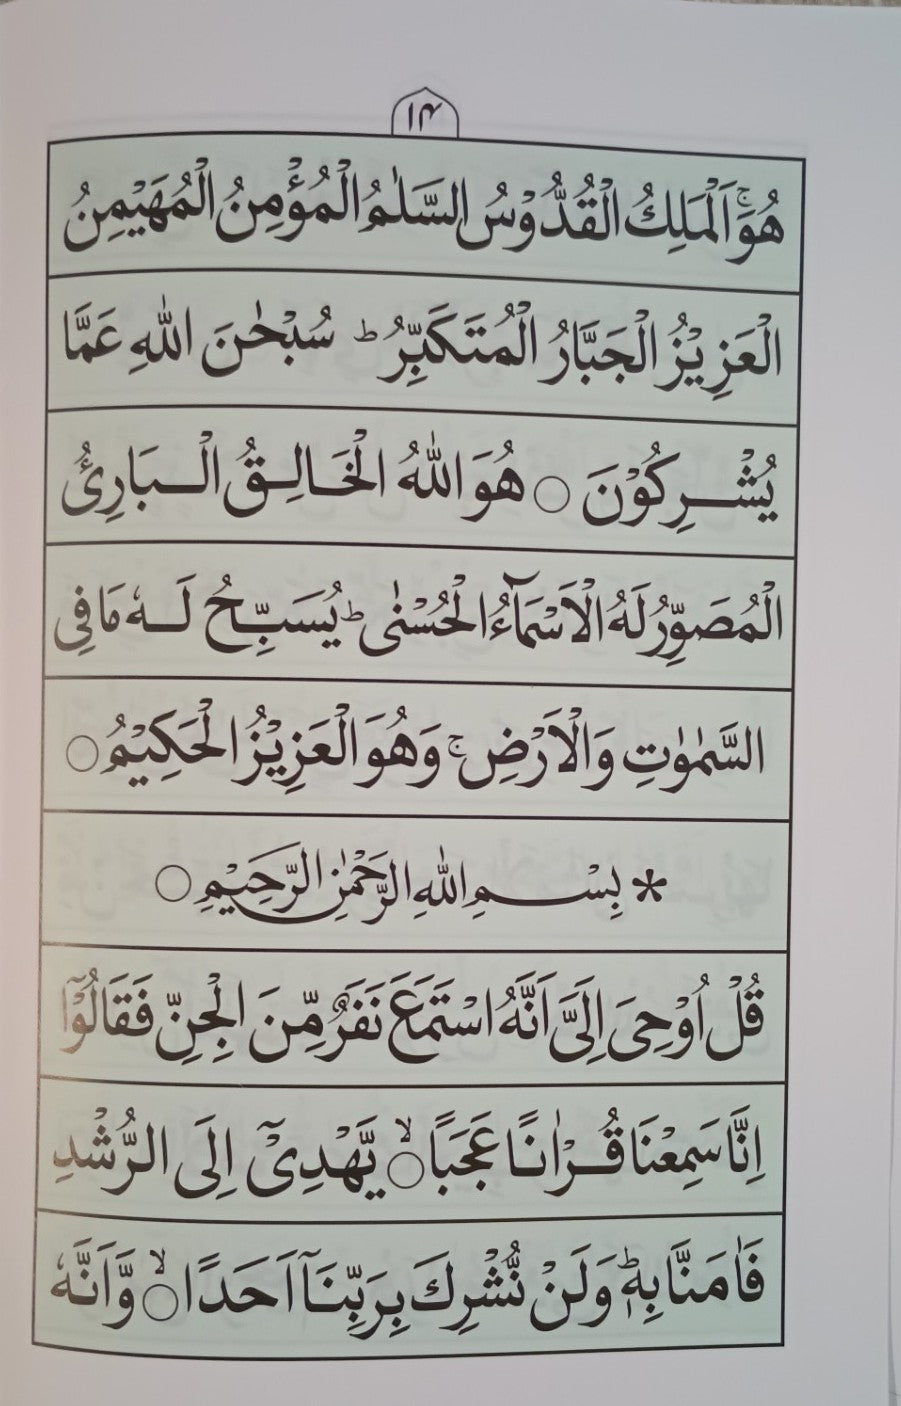 ۱۴
هُوَ ۚ اَلْمَلِكُ الْقُدُّوْسُ السَّلٰمُ الْمُؤْمِنُ الْمُهَيْمِنُ
الْعَزِيْزُ الْجَبَّارُ الْمُتَكَبِّرُ ؕ سُبْحٰنَ اللّٰهِ عَمَّا
يُشْرِكُوْنَ ○ هُوَ اللّٰهُ الْخَالِقُ الْبَارِئُ
الْمُصَوِّرُ لَهُ الْاَسْمَآءُ الْحُسْنٰى ؕ يُسَبِّحُ لَهٗ مَا فِى
السَّمٰوٰتِ وَالْاَرْضِ ۚ وَهُوَ الْعَزِيْزُ الْحَكِيْمُ ○
* بِسْمِ اللّٰهِ الرَّحْمٰنِ الرَّحِيْمِ ○
قُلْ اُوْحِىَ اِلَىَّ اَنَّهُ اسْتَمَعَ نَفَرٌ مِّنَ الْجِنِّ فَقَالُوْٓا
اِنَّا سَمِعْنَا قُرْاٰنًا عَجَبًا ○ۙ يَّهْدِىْٓ اِلَى الرُّشْدِ
فَاٰمَنَّا بِهٖ ؕ وَلَنْ نُّشْرِكَ بِرَبِّنَآ اَحَدًا ○ۙ وَّاَنَّهٗ